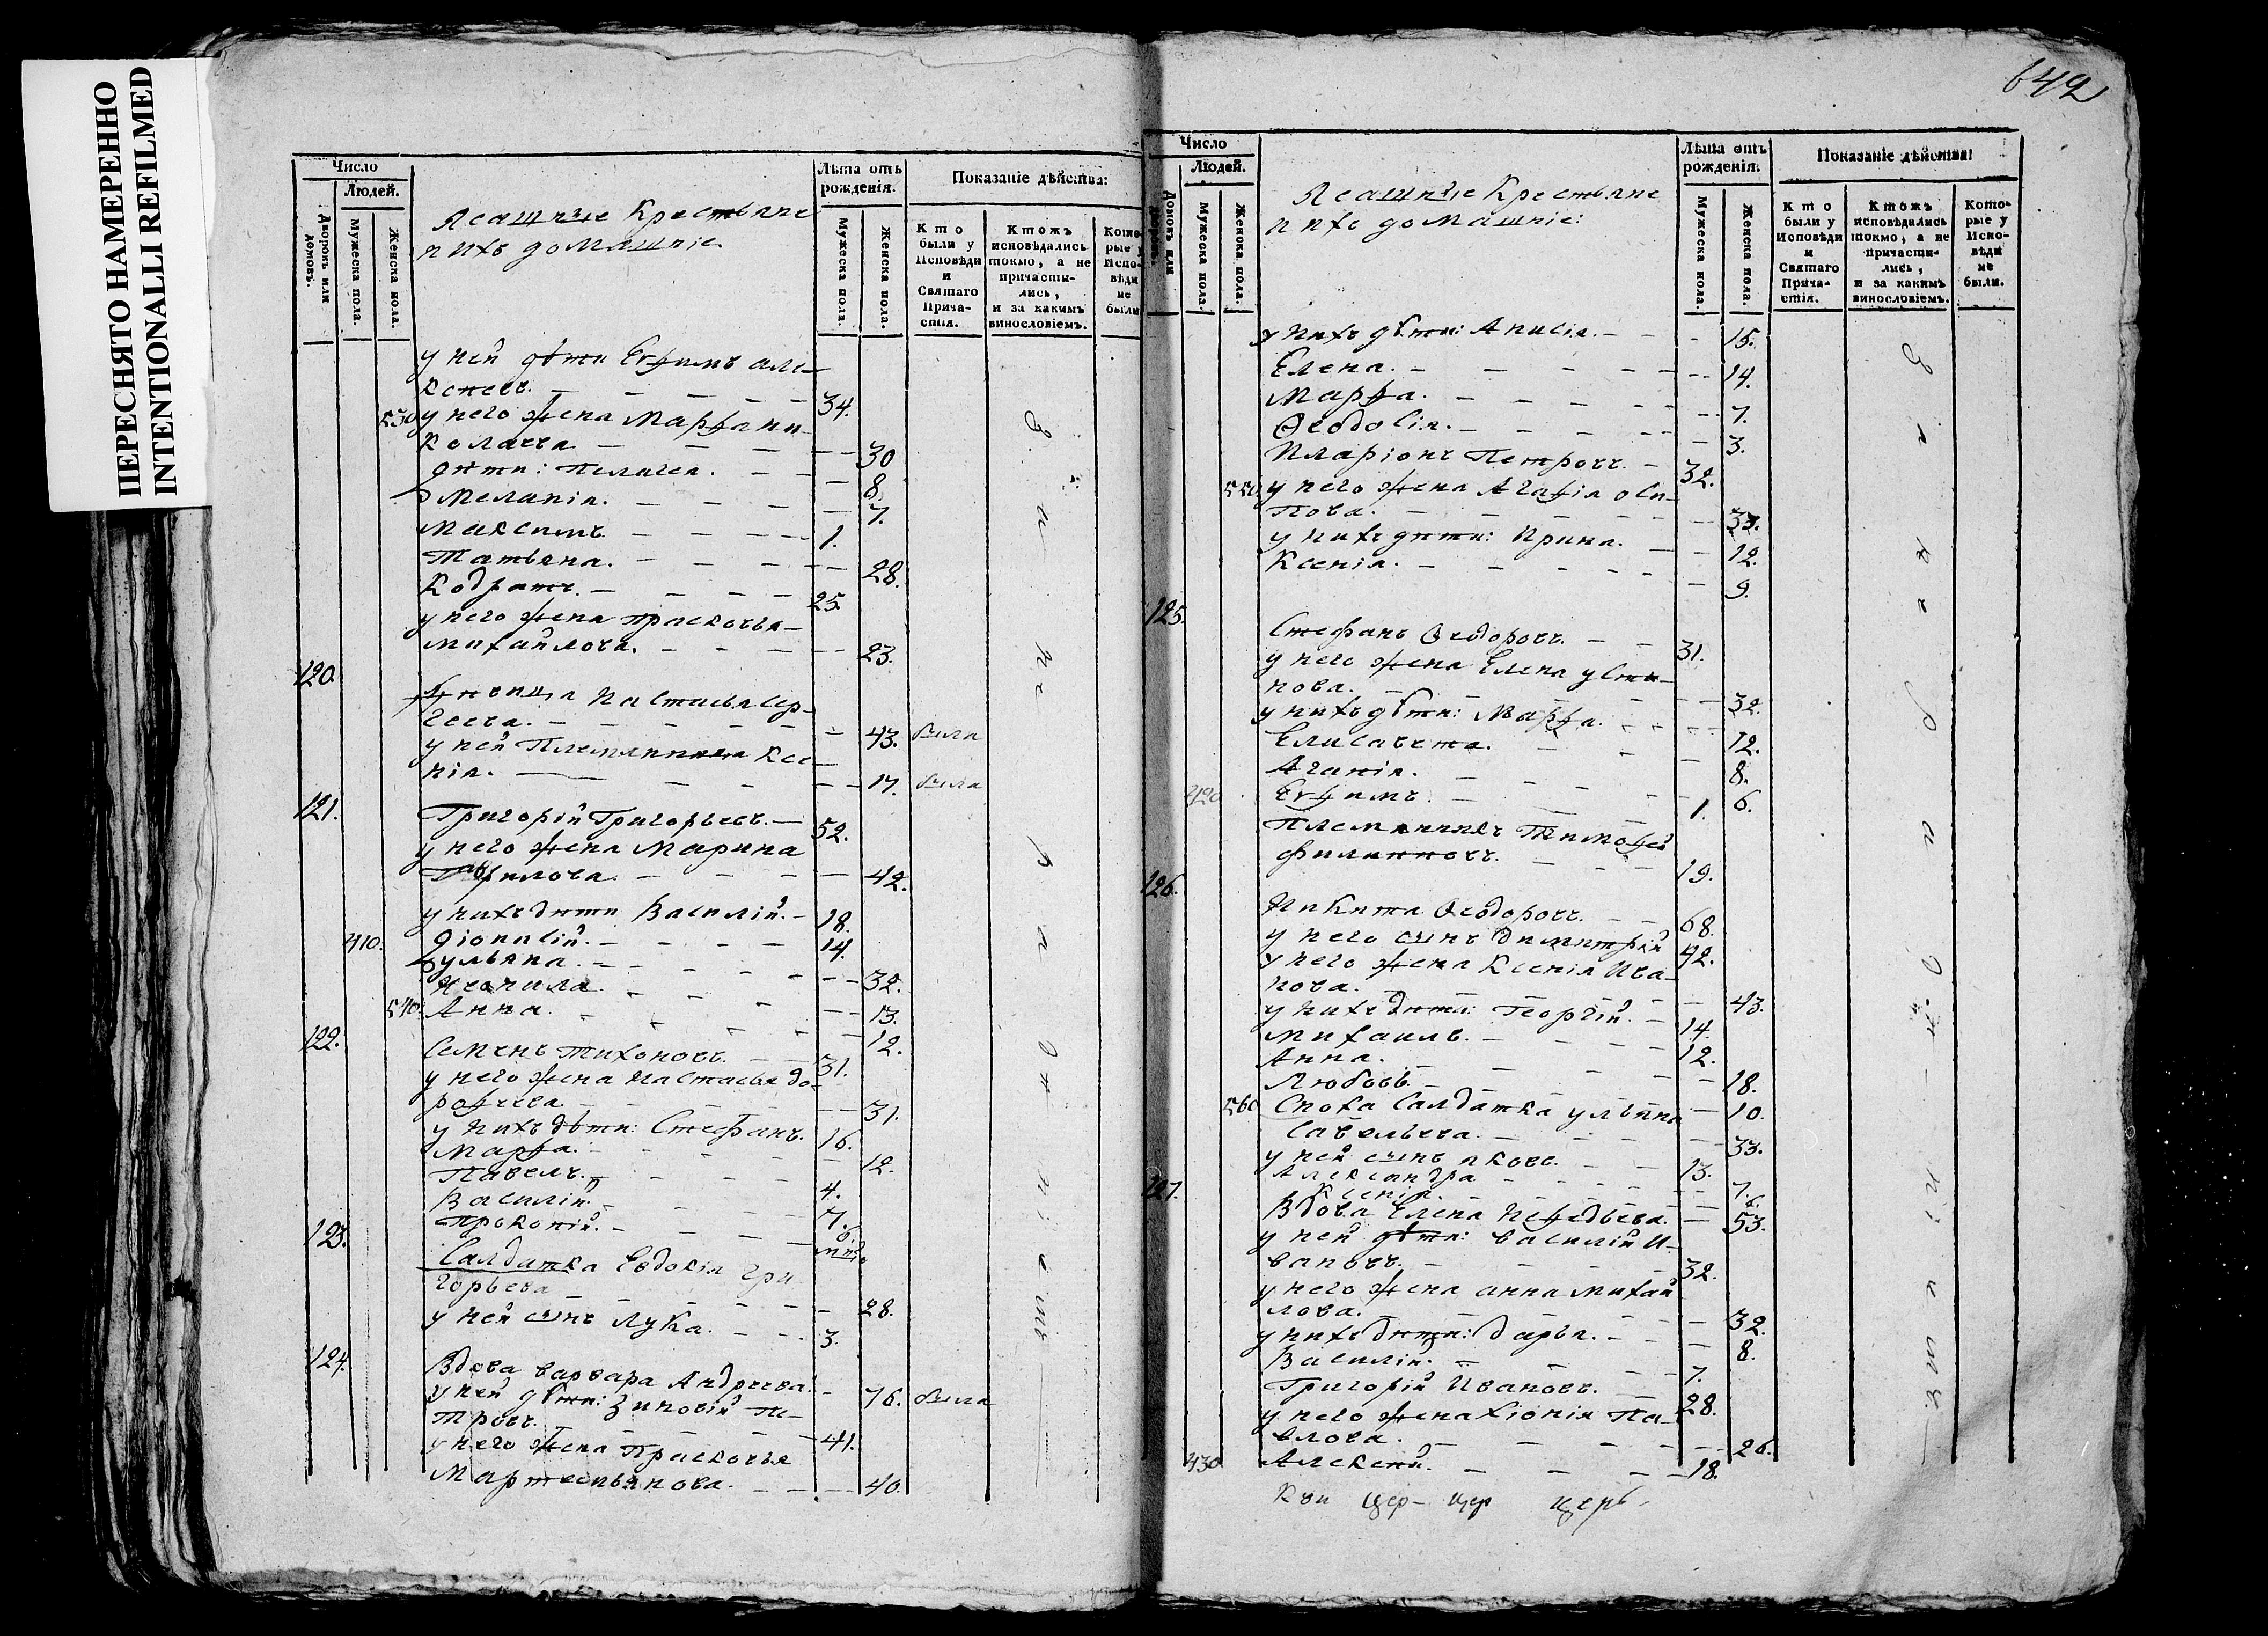 ПЕРЕСНЯТО НАМЕРЕННО
INTENTIONALLI REFILMED
Число
Людей.
Дворовъ или домовъ.
Мужеска пола.
Женска пола.
Ясашные Крестьяне
и ихъ домашніе.
Лѣта отъ рожденія.
Мужеска пола.
Женска пола.
Показаніе дѣйства:
Кто были у Исповѣди и Святаго Прича-стія.
Ктожъ исповѣдались токмо, а не причасти-лись, и за какимъ винословіемъ.
Кото-рые у Испо-вѣди не были
у ней дѣти Евфимъ але-
ксеевъ. 34.
530 у него жена Марфа ни-
колаева 30
дѣти: Пелагея. 8.
Меланія. 7.
Максимъ. 1.
Татьяна. 28.
Кодратъ. 25.
у него жена Прасковья
михайлова. 23.
120.
Девица Настасья Сер-
геева. 43. была
у ней Племянница Ксе-
нія. 17. была
121. Григорій Григорьевъ. 52.
у него жена Марина
Гаврилова 42.
у нихъ дѣти Василій. 18.
410. Діонисій. 14.
Ульяна. 32.
Неонила. 13.
540. Анна. 12.
122. Семенъ Тихоновъ. 31.
у него жена Настасья до-
рофеева 31.
у нихъ дѣти: Стефанъ. 16.
Марфа. 12.
Павелъ. 4.
Василій. 7.
Прокопій. 6.
123.
Салдатка Евдокія Гри
горьева 28.
у ней сынъ Лука. 3.
124. Вдова Варвара Андреева. 76. была
у ней дѣти: Зиновій Пе-
тровъ. 41.
у него жена Прасковья
Мартемьянова. 40.
за нерадѣніемъ
642
Число
Людей.
Домовъ или дворовъ.
Мужеска пола.
Женска пола.
Ясашные Крестьяне
и ихъ домашніе:
Лѣта отъ рожденія.
Мужеска пола.
Женска пола.
Показаніе дѣйства:
Кто были у Исповѣди и Святаго Прича-стія.
Ктожъ исповѣдались токмо, а не причасти-лись, и за какимъ винословіемъ.
Кото-рые у Испо-вѣди не были.
у нихъ дѣти: Анисія. 15.
Елена. 14.
Марфа. 7.
Ѳеодосія. 3.
Иларіонъ Петровъ. 32.
550. у него жена Агафія оси-
пова. 33.
у нихъ дѣти: Ирина. 12.
Ксенія. 9.
125.
Стефанъ Ѳедоровъ. 31.
у него жена Елена усти-
нова. 32.
у нихъ дѣти: Марфа. 12.
Елисавета. 8.
Агапія. 6.
420 Евфимъ. 1.
Племянникъ Тимофей
филипповъ. 19.
126.
Никита Ѳеодоровъ. 68.
у него сынъ Димитрій 42.
у него жена Ксенія Ива-
нова. 43.
у нихъ дѣти: Георгій. 14.
Михаилъ. 12.
Анна. 18.
Любовь. 10.
560 Сноха Салдатка ульяна
Савельева. 33.
у ней сынъ яковъ. 13.
Александра 7.
Ксенія. 6.
127. Вдова Елена Нефедьева. 53.
у ней дѣти: Василій И-
вановъ. 32.
у него жена анна михай
лова. 32.
у нихъ дѣти: Дарья. 8.
Василій. 7.
Григорій Ивановъ. 28.
у него жена Хіонія Па-
влова. 26.
430. Алексѣй. 18.
за нерадѣніемъ
цер- цер церь